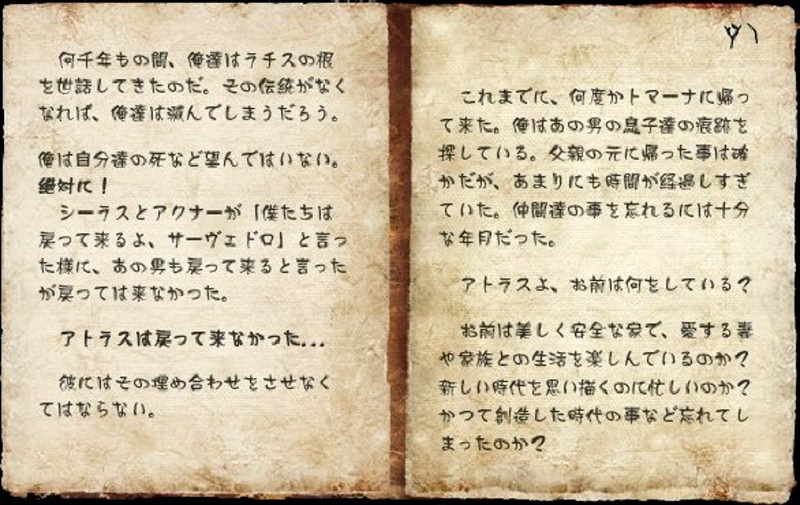 何千年もの間、俺達はラチスの根
を世話してきたのだ。その伝統がなく
なれば、俺達は滅んでしまうだろう。
俺は自分達の死など望んではいない。
絶対に！
シーラスとアクナーが「僕たちは
戻って来るよ、サーヴェドロ」と言っ
た様に、あの男も戻って来ると言った
が戻っては来なかった。
アトラスは戻って来なかった...
彼にはその埋め合わせをさせなく
てはならない。
これまでに、何度かトマーナに帰っ
て来た。俺はあの男の息子達の痕跡を
探している。父親の元に帰った事は確
かだが、あまりにも時間が経過しすぎ
ていた。仲間達の事を忘れるには十分
な年月だった。
アトラスよ、お前は何をしている？
お前は美しく安全な家で、愛する妻
や家族との生活を楽しんでいるのか？
新しい時代を思い描くのに忙しいのか？
かつて創造した時代の事など忘れてし
まったのか？